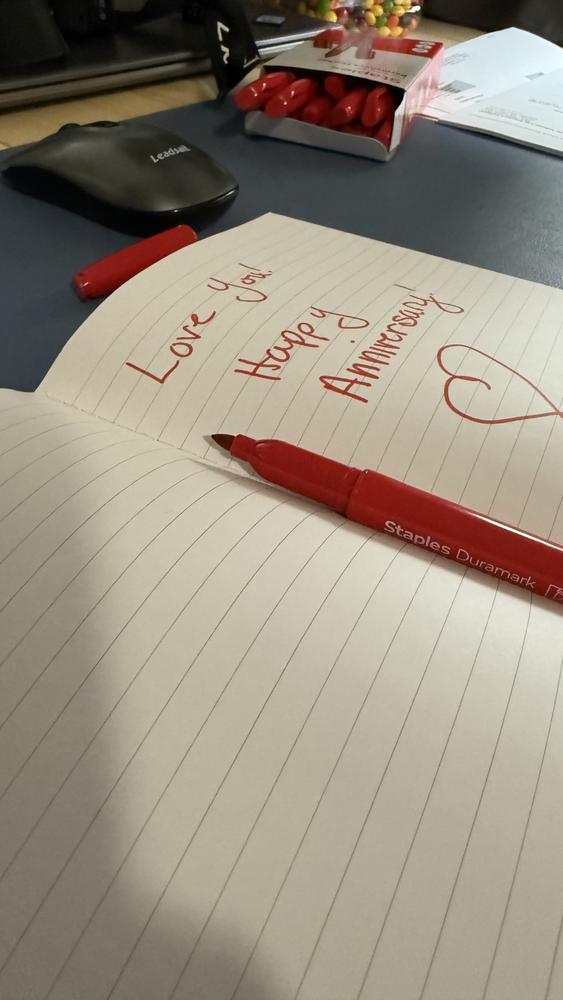 Leadsail
Staples
Love You!
Happy
Anniversary!
Staples Duramark